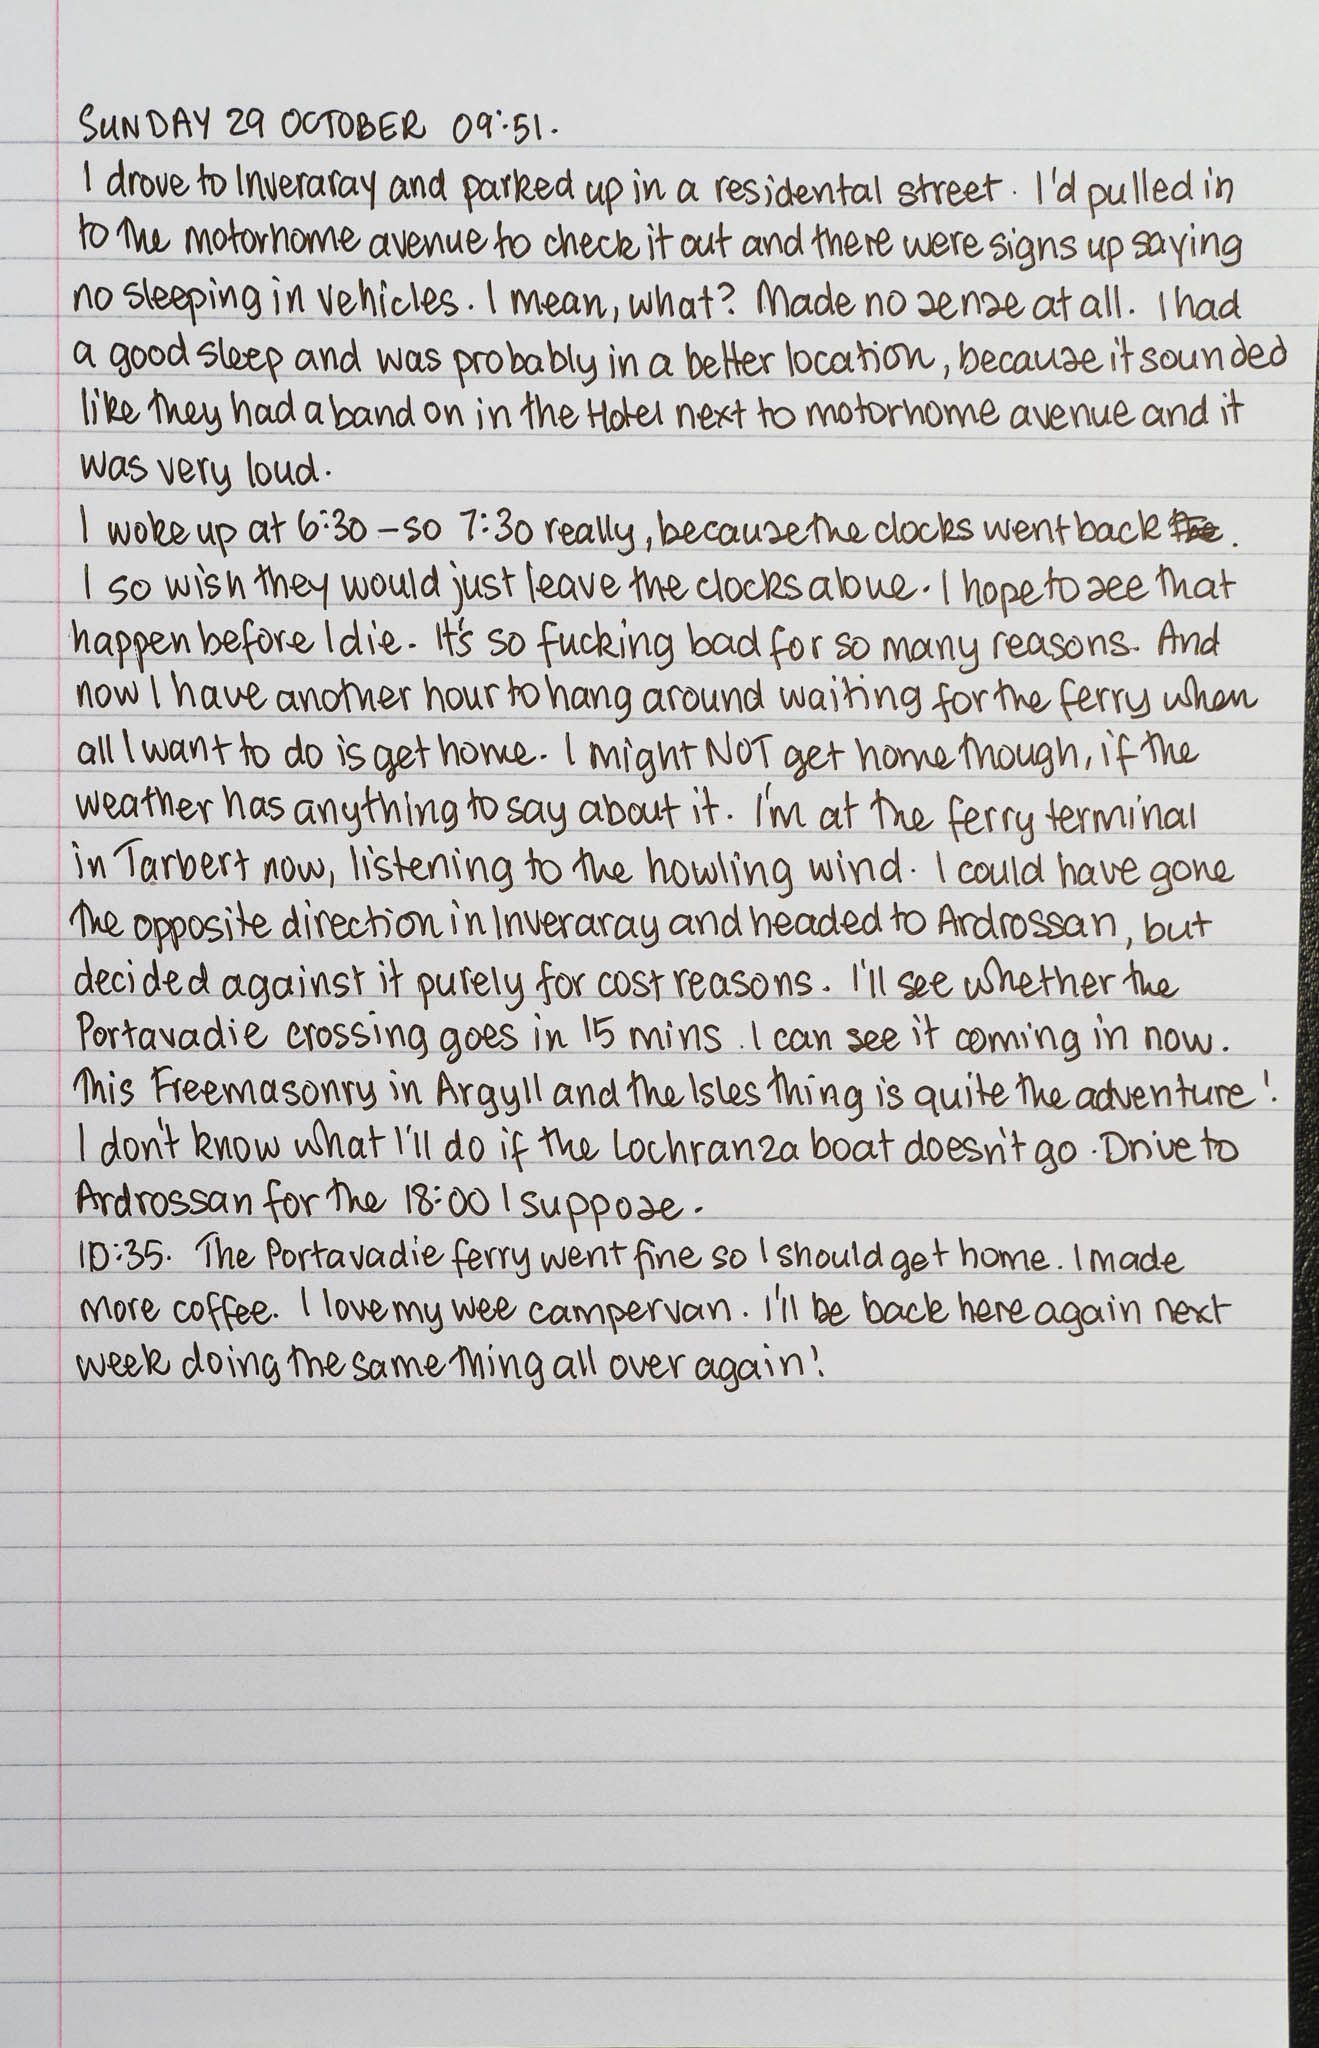 SUNDAY 29 OCTOBER 09:51.
I drove to Inveraray and parked up in a residental street. I'd pulled in
to the motorhome avenue to check it out and there were signs up saying
no sleeping in vehicles. I mean, what? Made no sense at all. I had
a good sleep and was probably in a better location, because it sounded
like they had a band on in the Hotel next to motorhome avenue and it
was very loud.
I woke up at 6:30 – so 7:30 really, because the clocks went back.
I so wish they would just leave the clocks alone. I hope to see that
happen before I die. It's so fucking bad for so many reasons. And
now I have another hour to hang around waiting for the ferry when
all I want to do is get home. I might NOT get home though, if the
weather has anything to say about it. I'm at the ferry terminal
in Tarbert now, listening to the howling wind. I could have gone
the opposite direction in Inveraray and headed to Ardrossan, but
decided against it purely for cost reasons. I'll see whether the
Portavadie crossing goes in 15 mins. I can see it coming in now.
This Freemasonry in Argyll and the Isles thing is quite the adventure!
I don't know what I'll do if the Lochranza boat doesn't go. Drive to
Ardrossan for the 18:00 I suppose.
10:35. The Portavadie ferry went fine so I should get home. I made
more coffee. I love my wee campervan. I'll be back here again next
week doing the same thing all over again!